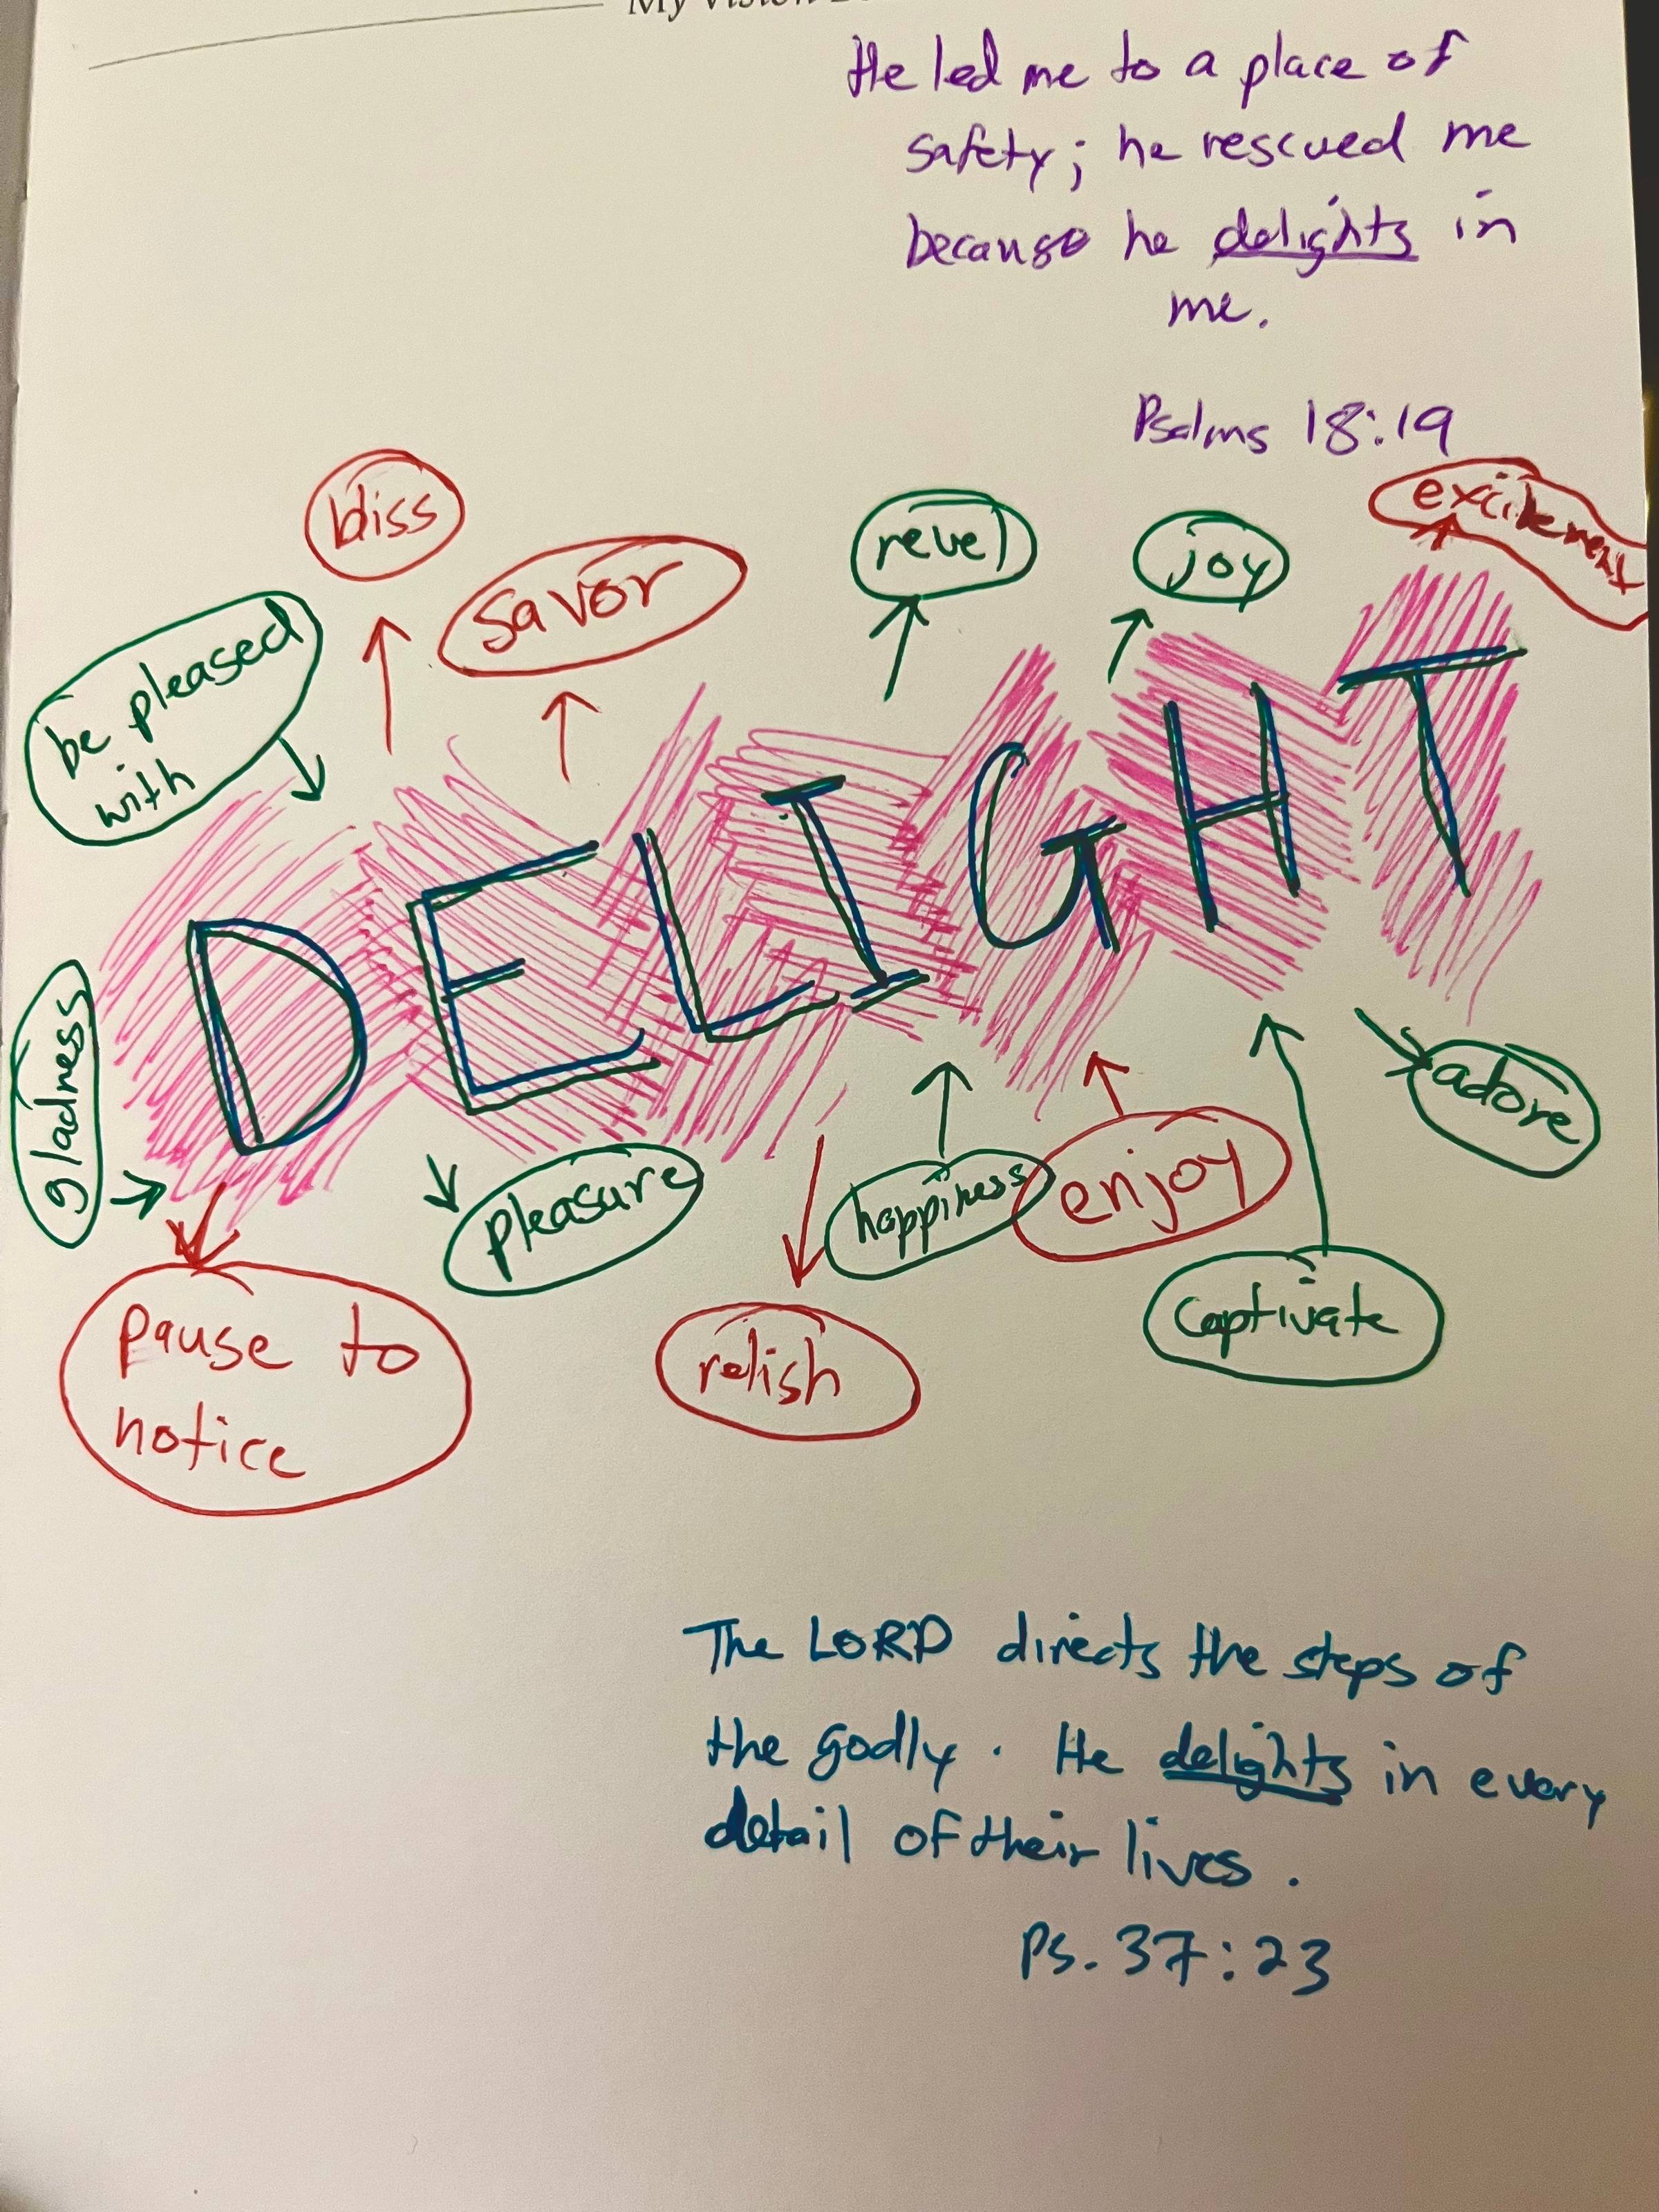 My Vision
He led me to a place of
safety; he rescued me
because he delights in
me.
Psalms 18:19
bliss
savor
revel
joy
excitement
be pleased
with
DELIGHT
gladness
adore
pleasure
happiness
enjoy
captivate
pause to
notice
relish
The LORD directs the steps of
the godly. He delights in every
detail of their lives.
Ps. 37:23